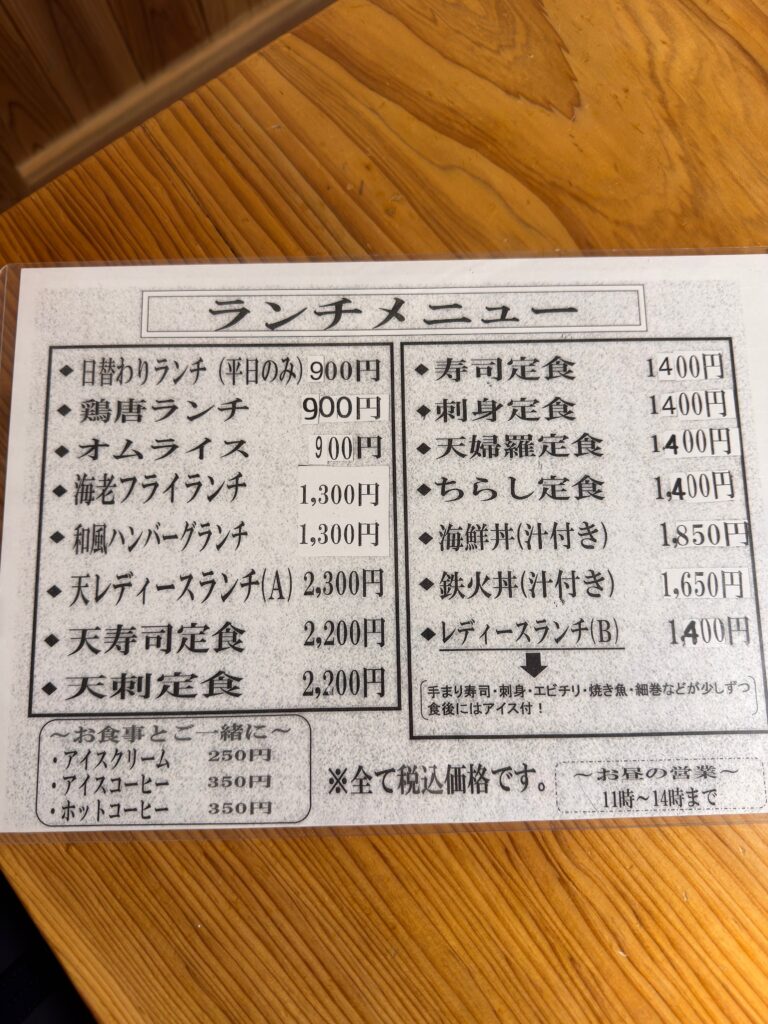 ランチメニュー
◆日替わりランチ（平日のみ）900円
◆鶏唐ランチ 900円
◆オムライス 900円
◆海老フライランチ 1,300円
◆和風ハンバーグランチ 1,300円
◆天レディースランチ(A) 2,300円
◆天寿司定食 2,200円
◆天刺定食 2,200円
◆寿司定食 1400円
◆刺身定食 1400円
◆天婦羅定食 1400円
◆ちらし定食 1,400円
◆海鮮丼(汁付き) 1,850円
◆鉄火丼(汁付き) 1,650円
◆レディースランチ(B) 1,400円
手まり寿司・刺身・エビチリ・焼き魚・細巻などが少しずつ
食後にはアイス付！
～お食事とご一緒に～
・アイスクリーム 250円
・アイスコーヒー 350円
・ホットコーヒー 350円
※全て税込価格です。
～お昼の営業～
11時～14時まで